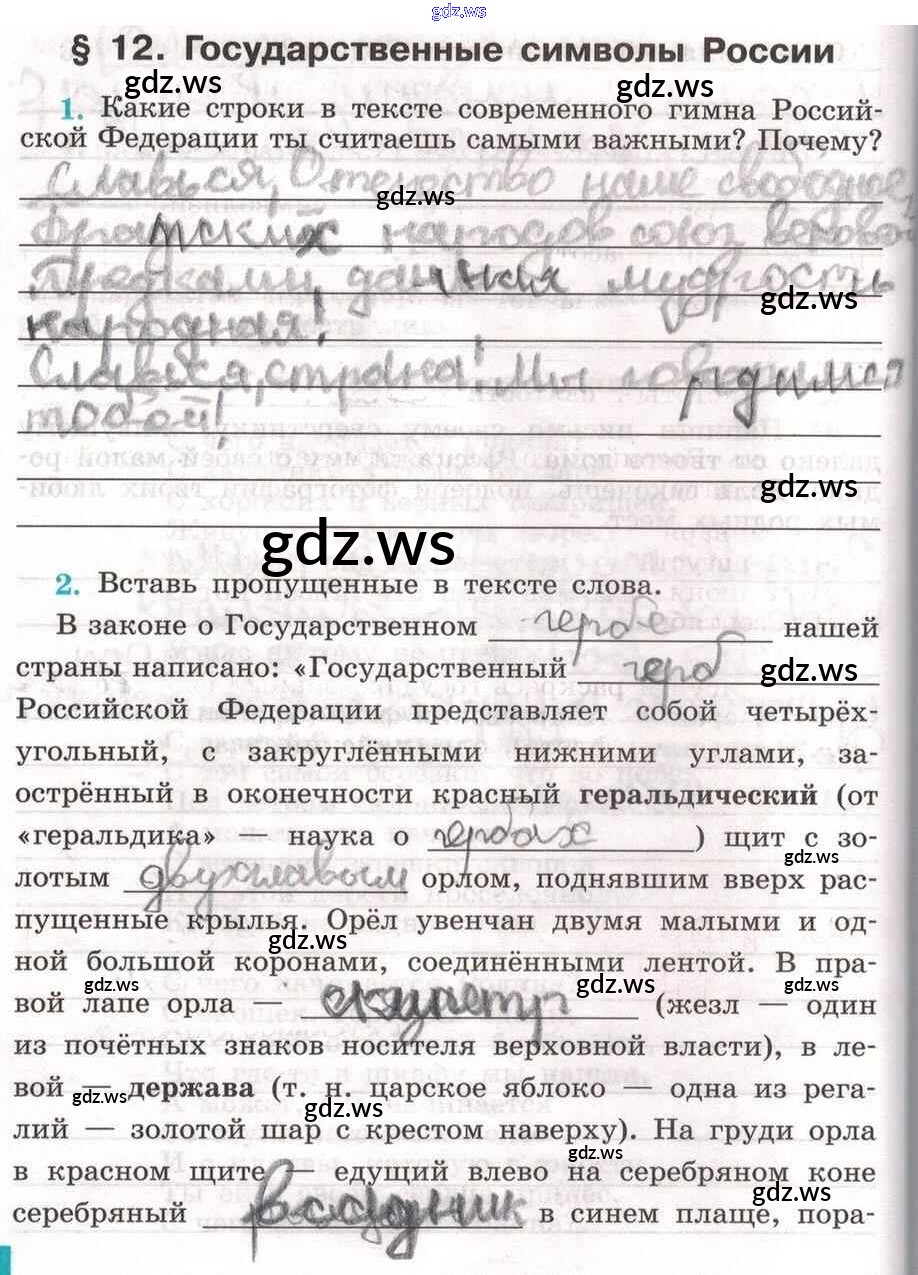 gdz.ws
§ 12. Государственные символы России
gdz.ws gdz.ws
1. Какие строки в тексте современного гимна Россий-
ской Федерации ты считаешь самыми важными? Почему?
Славься, Отечество наше свободное,
gdz.ws
братских народов союз вековой
Предками данная мудрость
gdz.ws
народная!
Славься, страна! Мы гордимся
тобой!
gdz.ws
gdz.ws
gdz.ws
2. Вставь пропущенные в тексте слова.
В законе о Государственном гербе нашей
страны написано: «Государственный герб gdz.ws
Российской Федерации представляет собой четырёх-
угольный, с закруглёнными нижними углами, за-
острённый в оконечности красный геральдический (от
«геральдика» — наука о гербах ) щит с зо-
gdz.ws
лотым двухглавым орлом, поднявшим вверх рас-
пущенные крылья. Орёл увенчан двумя малыми и од-
gdz.ws
ной большой коронами, соединёнными лентой. В пра-
gdz.ws gdz.ws gdz.ws
вой лапе орла — скипетр (жезл — один
из почётных знаков носителя верховной власти), в ле-
вой — держава (т. н. царское яблоко — одна из рега-
gdz.ws gdz.ws
лий — золотой шар с крестом наверху). На груди орла
gdz.ws
в красном щите — едущий влево на серебряном коне
gdz.ws
серебряный всадник в синем плаще, пора-